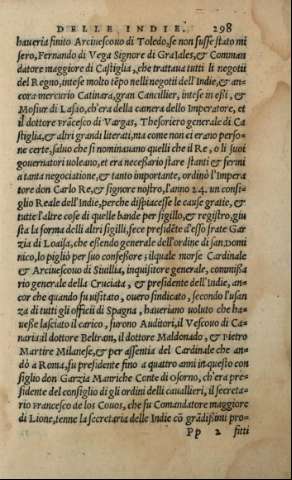 DELLE INDIE. 298
haueria finito Arciuescouo di Toledo, se non fusse stato mi
sero, Fernando di Vega Signore di Graiales, & Comman
datore maggiore di Castiglia, che trattaua tutti li negotii
del Regno, intese molto tẽpo nelli negotii dell'Indie, & an
cora mercurio Catinara, gran Cancillier, intese in essi, &
Mosiur di Lasao, ch'era della camera dello Imperatore, et
il dottore Frãcesco di Vargas, Thesoriero generale di Ca
stiglia, & altri grandi literati, ma come non ci erano perso=
ne certe, saluo che si nominauano quelli che il Re, o li suoi
gouernatori uoleano, et era necessario stare stanti & fermi
a tanta negociatione, & tanto importante, ordinò l'Impera
tore don Carlo Re, & signore nostro, l'anno 24. un consi=
glio Reale dell'Indie, perche dispiacesse la cause gratie, &
tutte l'altre cose di quelle bande per sigillo, & registro, giu
sta la forma delli altri sigilli, fece presidẽte d'esso frate Gar
zia di Loaisa, che essendo generale dell'ordine di san Domi
nico, lo pigliò per suo confessore; ilquale morse Cardinale
& Arciuescouo di Siuillia, inquisitore generale, commissa
rio generale della Cruciata, & presidente dell'Indie, an=
cor che quando fu uisitato, ouero sindicato, secondo l'usan
za di tutti gli officii di Spagna, haueriano uoluto che ha=
uesse lasciato il carico, furono Auditori, il Vescouo di Ca=
naria il dottore Beltran, il dottore Maldonado, & Pietro
Martire Milanese, & per assentia del Cardinale che an=
dò a Roma, fu presidente fino a quattro anni in questo con
siglio don Garzia Manriche Conte di Osorno, ch'era pre=
sidente del consiglio di gli ordini delli cauallieri, il secreta=
rio Francesco de los Couos, che fu Comandatore maggiore
di Lione, tenne la secretaria delle Indie cõ grãdissimi pro=
Pp 2 fitti